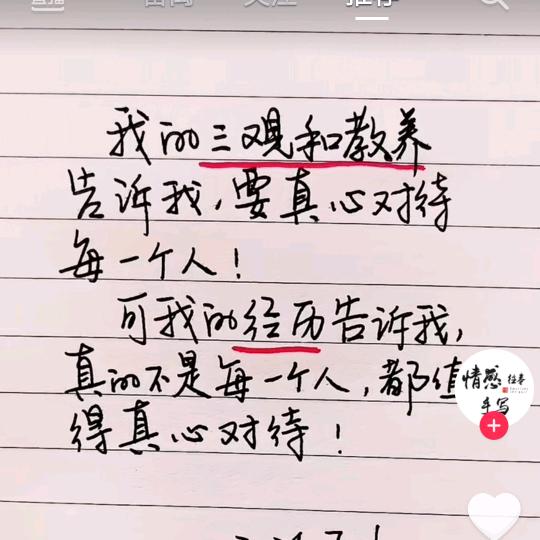 推荐
我的三观和教养
告诉我,要真心对待
每一个人!
可我的经历告诉我,
真的不是每一个人,都值
得真心对待!
情感
手写